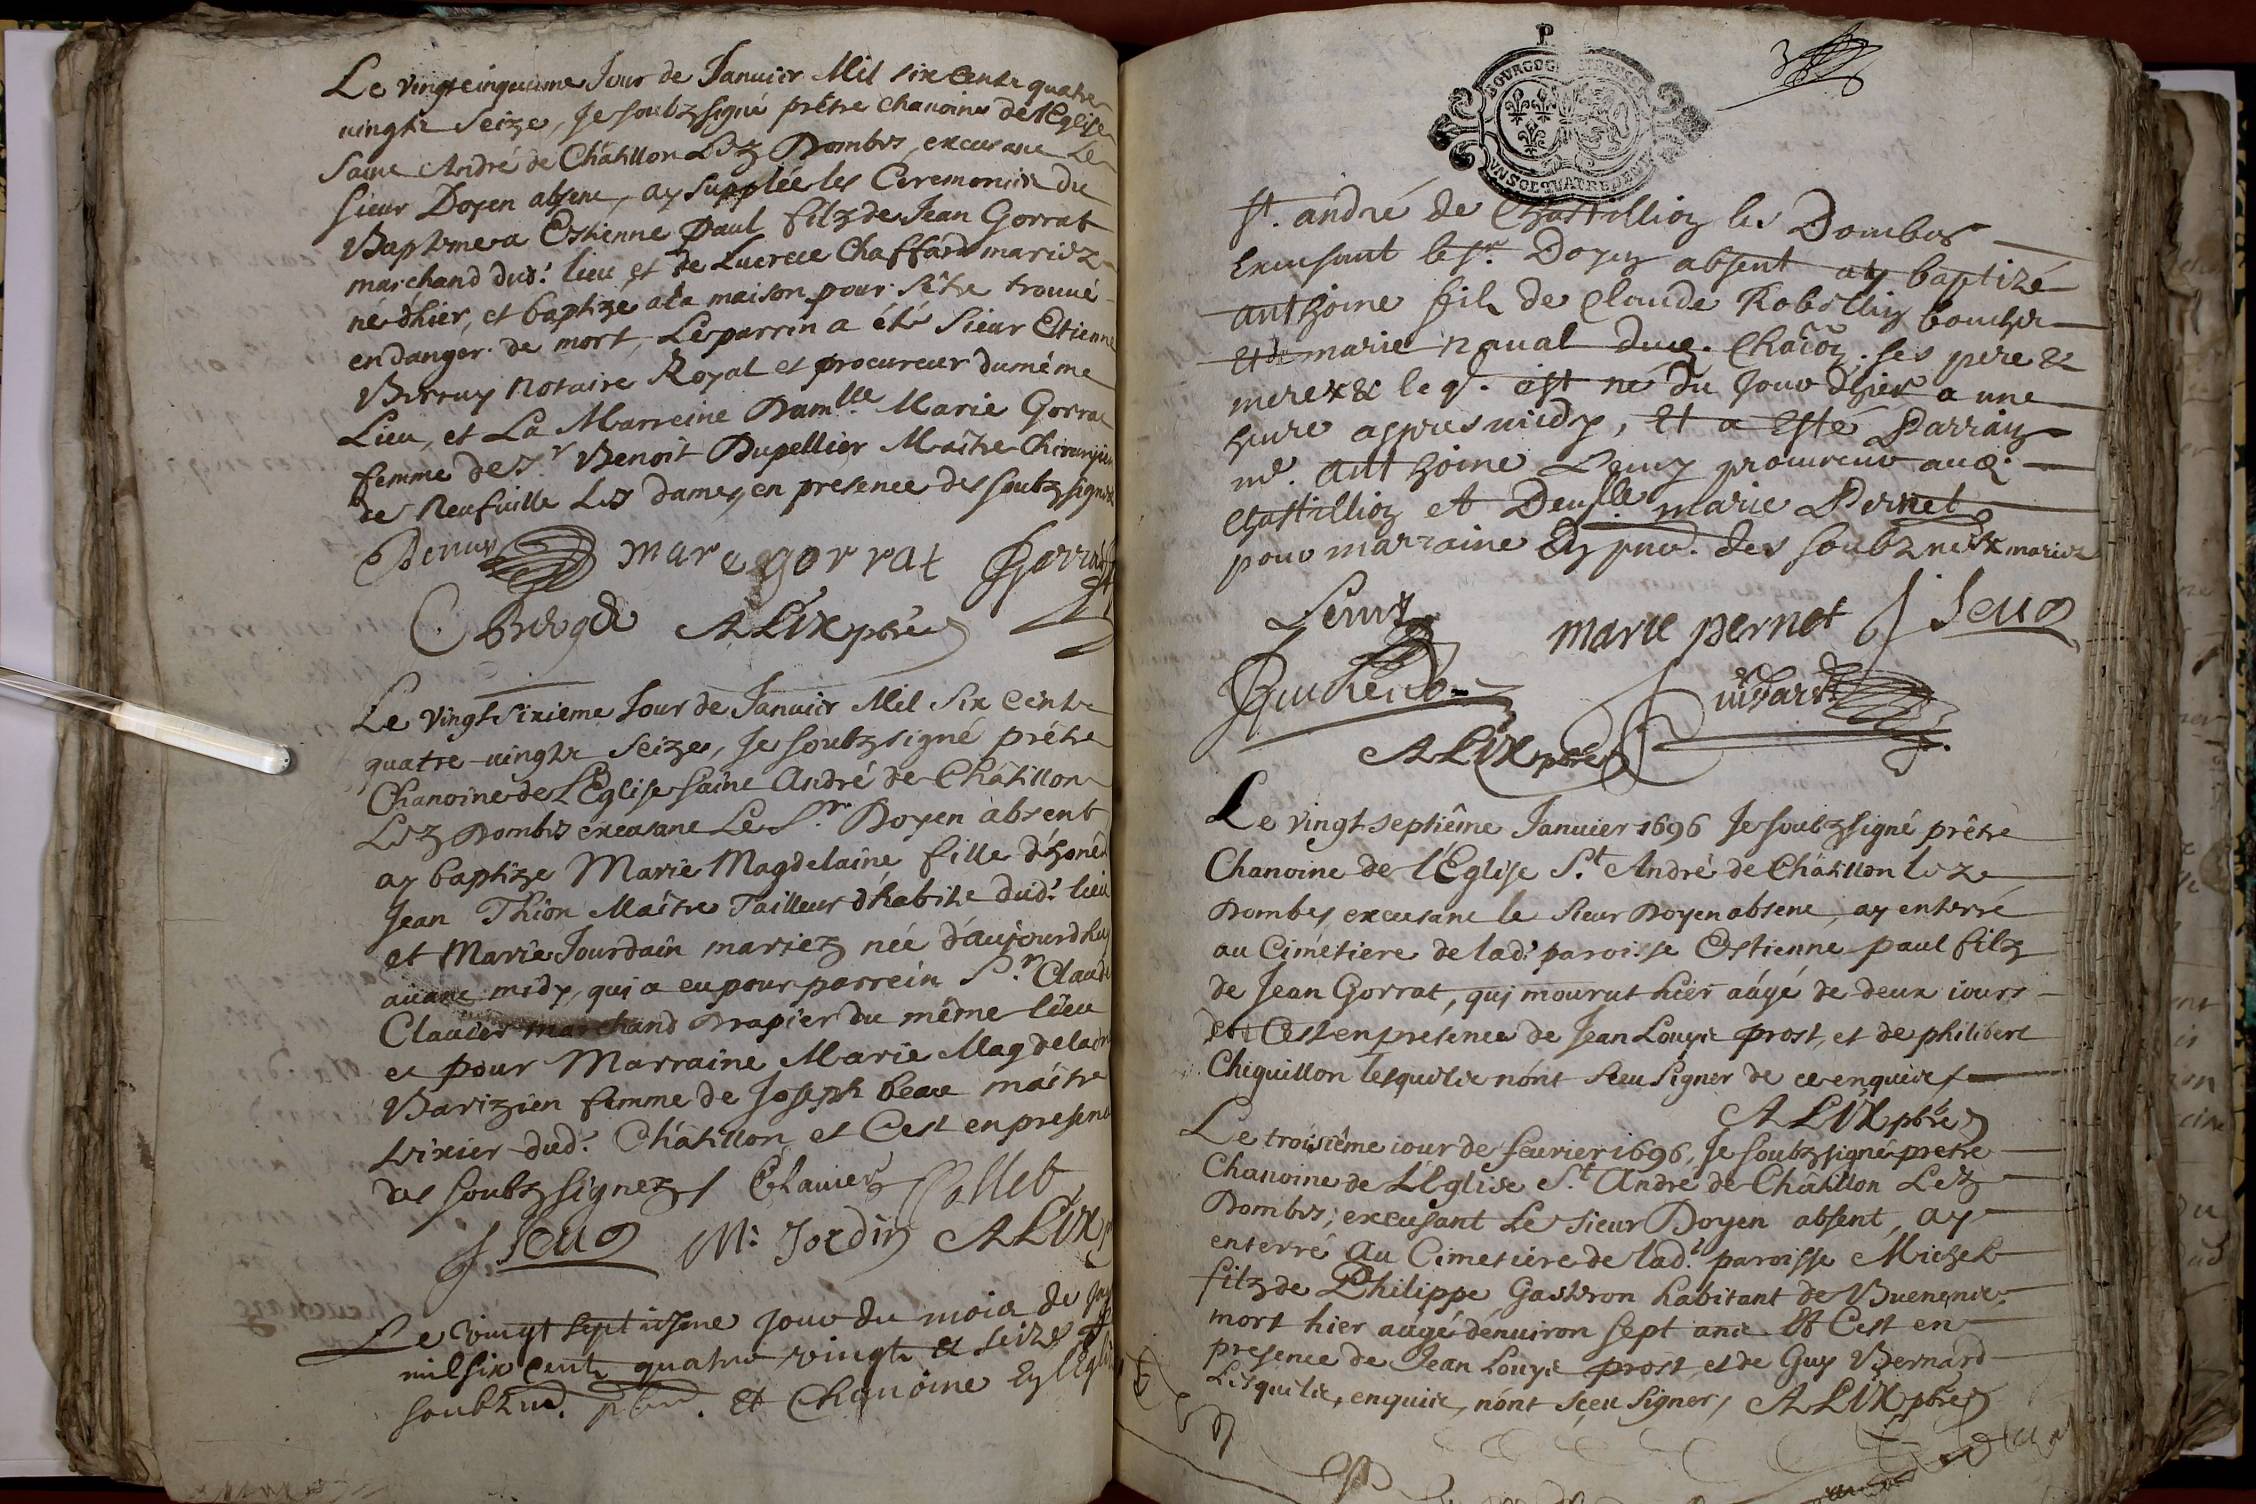 Le vingtcinquieme Jour de Januier Mil six Cents quatre
uingts Seize, Je soubzsigné prêtre chanoine de l'Eglise
Saint André de Châtillon Lez Dombes, excusant Le
sieur Doyen absent, ay supplée les Ceremonies du
Baptême a Estienne Paul filz de Jean Gorrat
marchand dud.t lieu et de Lucrece Chaffard mariez
né d'hier, et baptizé a la maison pour s'être trouué
en danger de mort, Le parrin a été Sieur Etienne
Berruy Notaire Royal et procureur du même
Lieu, et La Marreine Dam.lle Marie Gorrat
femme de S.r Benoit Dupellier Maître Chirurgien
de Neufuille Les dames, en presence des soubzsignez
marc gorrat Gorrat
ALIX pbre
Le vingt sixieme Jour de Januier Mil Six Cents
quatre-uingts Seize, Je soubzsigné prêtre
Chanoine de L'Eglise Saint André de Châtillon
Lez Dombes excusant Le S.r Doyen absent
ay baptize Marie Magdelaine fille d'honête
Jean Thion Maître Tailleur d'habits dud.t lieu
et Marie Jourdain mariez née d'aujourdhuy
auant midy, qui a eu pour parrein S.r Claude
Clauier marchand Drapier du même lieu
et pour Marraine Marie Magdelaine
Barizien femme de Joseph beau maître
tixier dud.t Châtillon, et C'est en presence
des soubzsignez / Clauier Collet
M: Jordin ALIX
Le vingt septiesme jour du mois de
mil six cent quatre vingt et seize
soubzné. pbre. et Chanoine En l'Eglise
P
BOURGOGNE
UN SOL QUATRE DEN
3
St. andré de Chastillion les Dombes
Excusant le sr. Doyen absent ay baptizé
anthoine fils de Claude Robellin boucher
et de marie naual dud. Chãon. ses pere &
mere le ql. est né du jour d'hier a une
heure apres midy, et a Esté Parrain
me. anthoine procureur aud.
Chastillion et Demslle marie Pernet
pour marraine En pnce. des soubznés mariez
marie pernet
ALIX pbre
Le vingt septiême Januier 1696 Je soubzsigné prêtre
Chanoine de l'Eglise S.t André de Châtillon lez
Dombes, excusant le Sieur Doyen absent, ay enterré
au Cimetiere de lad.t paroisse Estienne paul filz
de Jean Gorrat, qui mourut hier aágé de deux iours
C'est en presence de Jean Louys Prost, et de philibert
Chiquillon lesquels n'ont sceu signer de ce enquis /
ALIX pbre
Le troisiême iour de feurier 1696, Je soubzsigné pretre
Chanoine de L'Eglise S.t André de Châtillon Lez
Dombes, excusant Le Sieur Doyen absent, ay
enterré au Cimetiere de lad.t paroisse Michel
filz de Philippe Gastron habitant de Buenens
mort hier aágé d'enuiron sept ans Et C'est en
presence de Jean Louys prost, et de Guy Bernard
Lesquels, enquis, n'ont sçeu signer / ALIX pbre